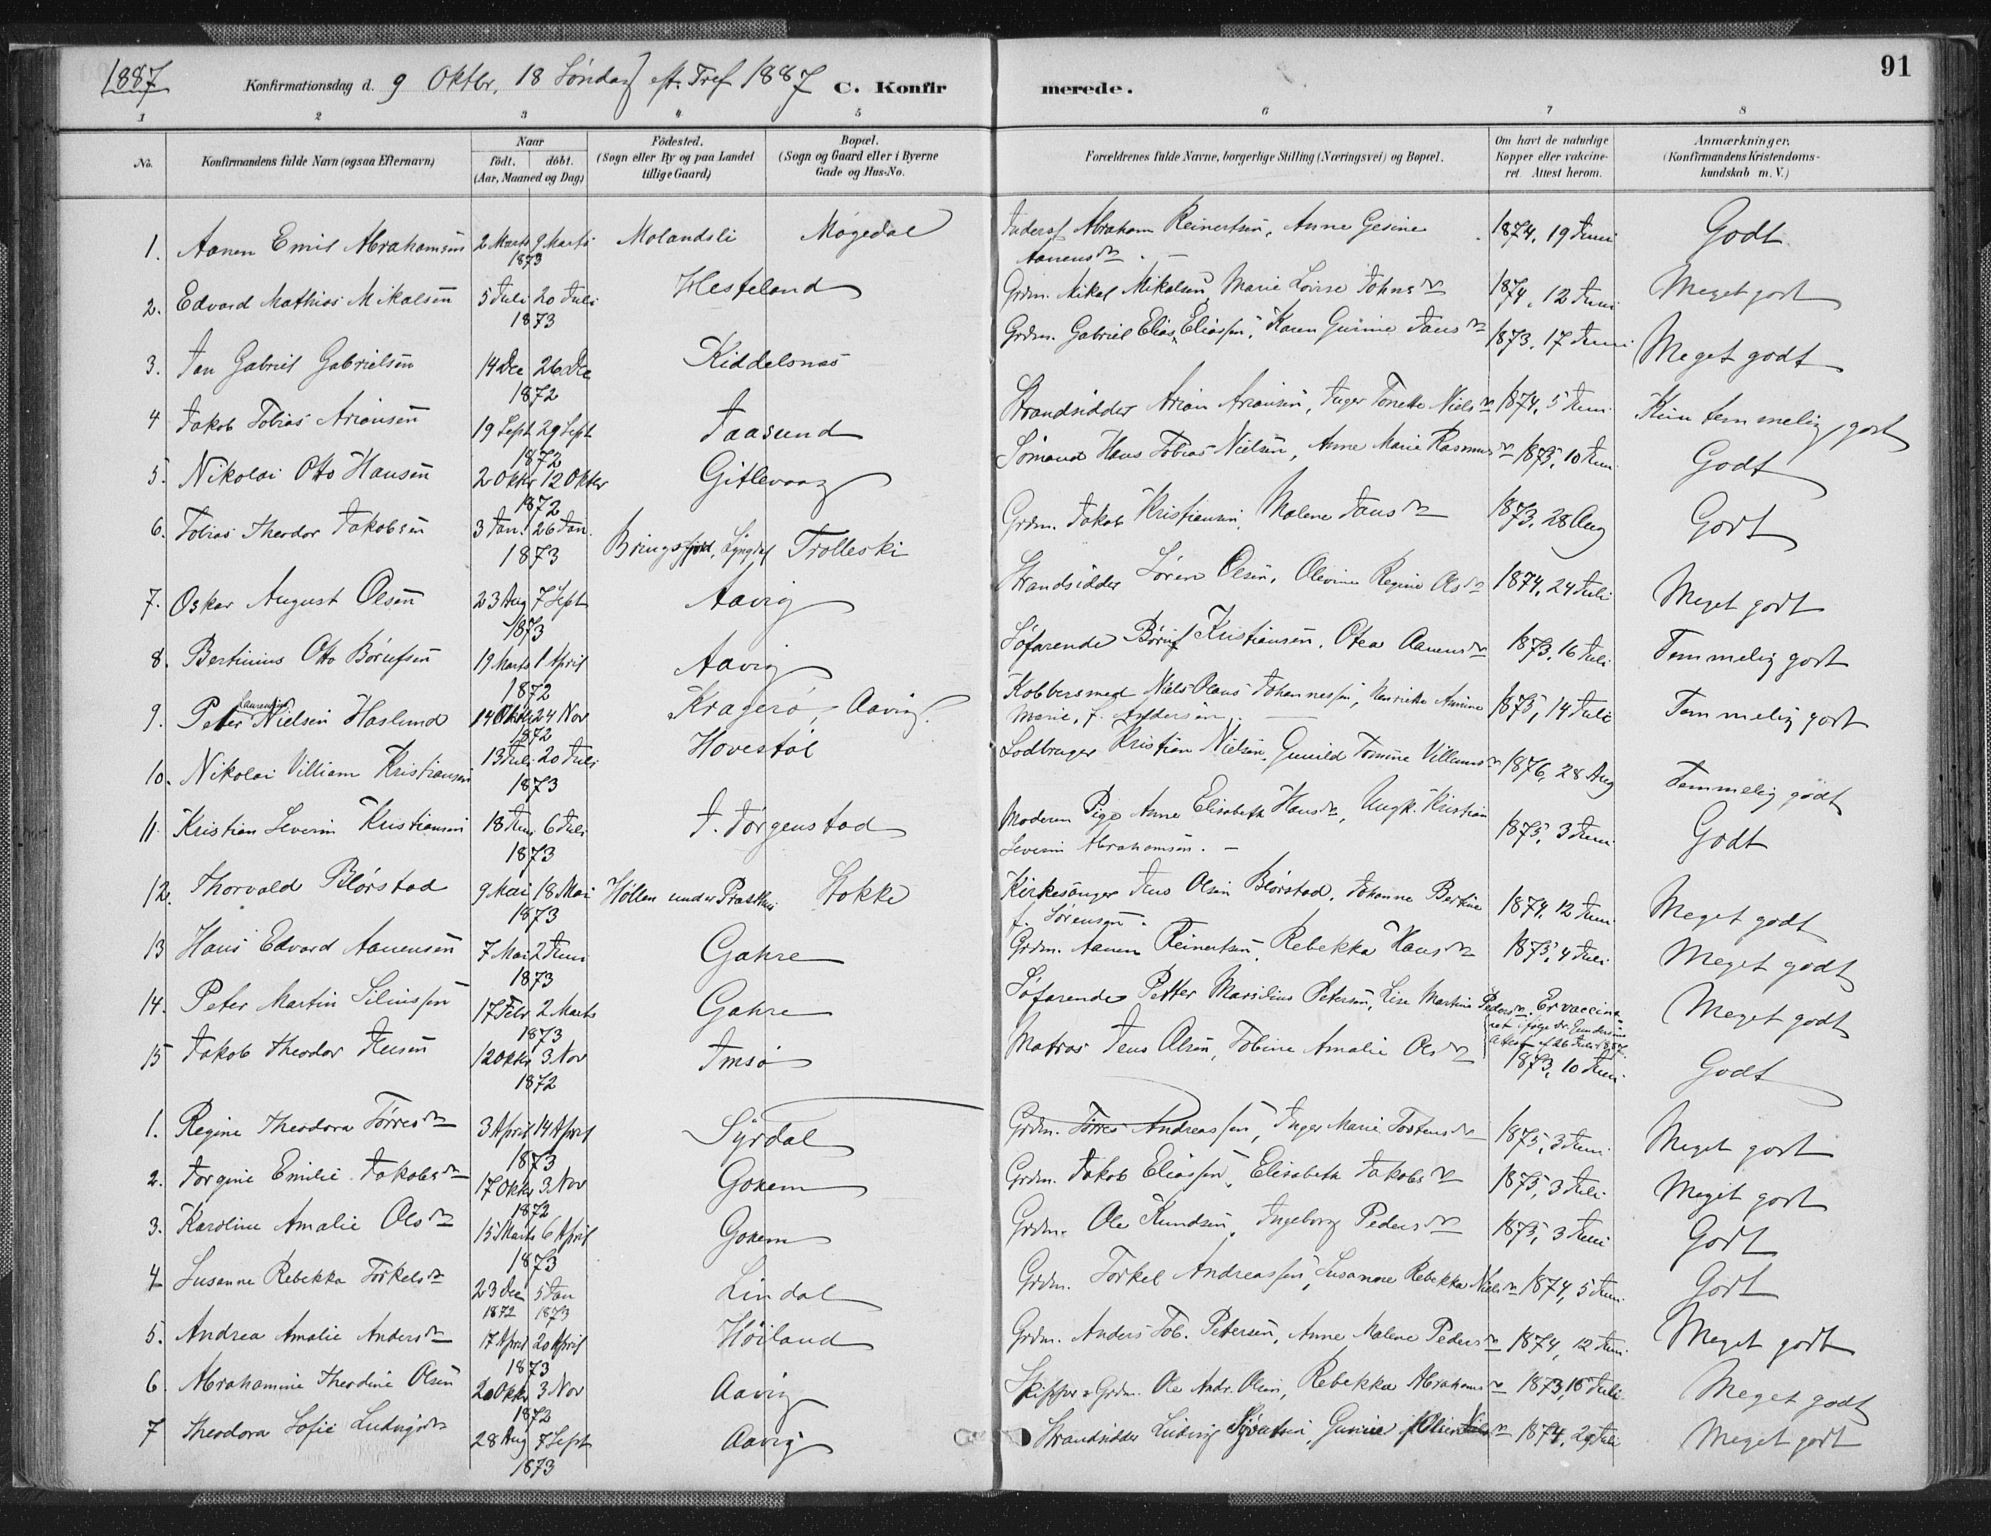 1887 Konfirmationsdag d. 9 Oktbr. 18 Søndag eft. Tref 1887 C. Konfir merede. 91
1 2 3 4 5 6 7 8
No. Konfirmandens fulde Navn (ogsaa Efternavn) Naar født. døbt. (Aar, Maaned og Dag) Fødested. (Sogn eller By og paa Landet tillige Gaard) Bopæl. (Sogn og Gaard eller i Byerne Gade og Hus-No. Forældrenes fulde Navne, borgerlige Stilling (Næringsvei) og Bopæl. Om havt de naturlige Kopper eller vakcineret. Attest herom. Anmærkninger. (Konfirmandens Kristendomskundskab m. V.)
1. Aanen Emil Abrahamsen 2 Marts 9 Marts 1873 Molandsli Møgedal Abraham Reinertsen, Anne Gesine Aanensdr. 1874, 19 Juni Godt
2. Edvard Mathias Mikalsen 5 Juli 20 Juli 1873 Hesteland Grdm. Mikal Mikalsen, Marie Lovise Johnsdr 1874, 12 Juni Meget godt
3. Jan Gabriel Gabrielsen 14 Dec 26 Dec 1872 Kiddelsnas Grdm. Gabriel Elias Eliassen, Karen Gurine Jansdr 1873, 17 Juni Meget godt
4 Jakob Tobias Ariansen 19 Sept 29 Sept 1872 Jaasund Strandsidder Arian Ariansen, Inger Tonette Nielsdr 1874, 5 Juni Kun temmelig godt
5. Nikolai Otto Hansen 2 Oktbr 12 Oktbr 1872 Gitlevaag Sømand Hans Tobias Nielsen, Anne Marie Rasmusdr 1875, 10 Juni Godt
6. Tobias Theodor Jakobsen 3 Jan. 26 Jan. 1873 Bringsjord, Lyngdal Trolleski Grdm. Jakob Kristiansen, Malene Jansdr 1873, 28 Aug Godt
7. Oskar August Olsen 23 Aug 7 Sept 1873 Aavig Strandsidder Søren Olsen, Olevine Regine Olsdr 1874, 24 Juli Meget godt
8. Bertinius Otto Børufsen 19 Marts 1 April 1872 Aavig Søfarende Børuf Kristiansen, Otea Aanensdr 1873, 16 Juli Temmelig godt
9. Peter Laurentius Nielsen Haslund 14 Oktbr 24 Nov 1872 Kragerø, Aavig. Kobbersmed Niels Olaus Johannessen, Henrikke Amine Marie, f. Andersen 1875, 14 Juli Temmelig godt
10. Nikolai Villiam Kristiansen 13 Juli 20 Juli 1873 Hovestøl Lodbruger Kristian Nielsen, Gunild Tomine Villumsdr 1876, 28 Aug Temmelig godt
11. Kristian Severin Kristiansen 18 Juni 6 Juli 1873 J. Jørgenstad Moderen Pige Anne Elisabeth Hansdr, Ungk. Kristian Severin Abrahamsen. 1875, 3 Juni Godt
12. Thorvald Blørstad 9 Mai 18 Mai 1873 Høllen under Stokke Kirkesanger Jens Olsen Blørstad, Johanne Bertine f. Sørensen. 1874, 12 Juni Meget godt
13 Hans Edvard Aanensen 7 Mai 2 Juni 1873 Gahre Grdm. Aanen Reinertsen, Rebekka Hansdr 1875, 4 Juli Meget godt
14. Peter Martin Siliussen 17 Febr 2 Marts 1873 Gahre Søfarende Petter Marsilius Petersen, Lise Martine Pedersdr. Er vaccineret ifølge Dr. Gundersens Attest af 26 Juli 1887. Meget godt
15 Jakob Theodor Jensen 12 Oktbr 3 Nov 1872 Imsø Matros Jens Olsen, Tobine Amalie Olsdr 1873, 10 Juni Godt
1. Regine Theodora Tørresdr 3 April 14 April 1873 Syrdal Grdm. Tørres Andreassen, Inger Marie Torkensdr 1875, 3 Juni Meget godt
2. Jorgine Emilie Jakobsdr 17 Oktbr 3 Nov 1872 Goxem Grdm. Jakob Eliassen, Elisabeth Jakobsdr 1875, 3 Juli Meget godt
3. Karoline Amalie Olsdr 15 Marts 6 April 1873 Goxem Grdm. Ole Knudsen, Ingeborg Pedersdr 1875, 3 Juni Godt
4 Susanne Rebekka Torkelsdr 23 Dec 1872 5 Jan 1873 Lindal Grdm. Torkel Andreassen, Susanne Rebekka Nielsdr 1874, 5 Juni Godt
5. Andrea Amalie Andersdr 17 April 20 April 1873 Høiland Grdm. Anders Tob. Petersen, Anne Malene Pedersdr 1874, 12 Juni Meget godt
6 Abrahamine Theodine Olsen 20 Oktbr 3 Nov 1872 Aavig Skipper & Grdm. Ole Andr. Olsen, Rebekka Abrahamsdr 1873, 15 Juli Meget godt
7 Theodora Sofie Ludvigsdr 28 Aug 7 Sept 1873 Aavig Strandsidder Ludvig Syvertsen, Gurine 1874, 29 Juli Meget godt